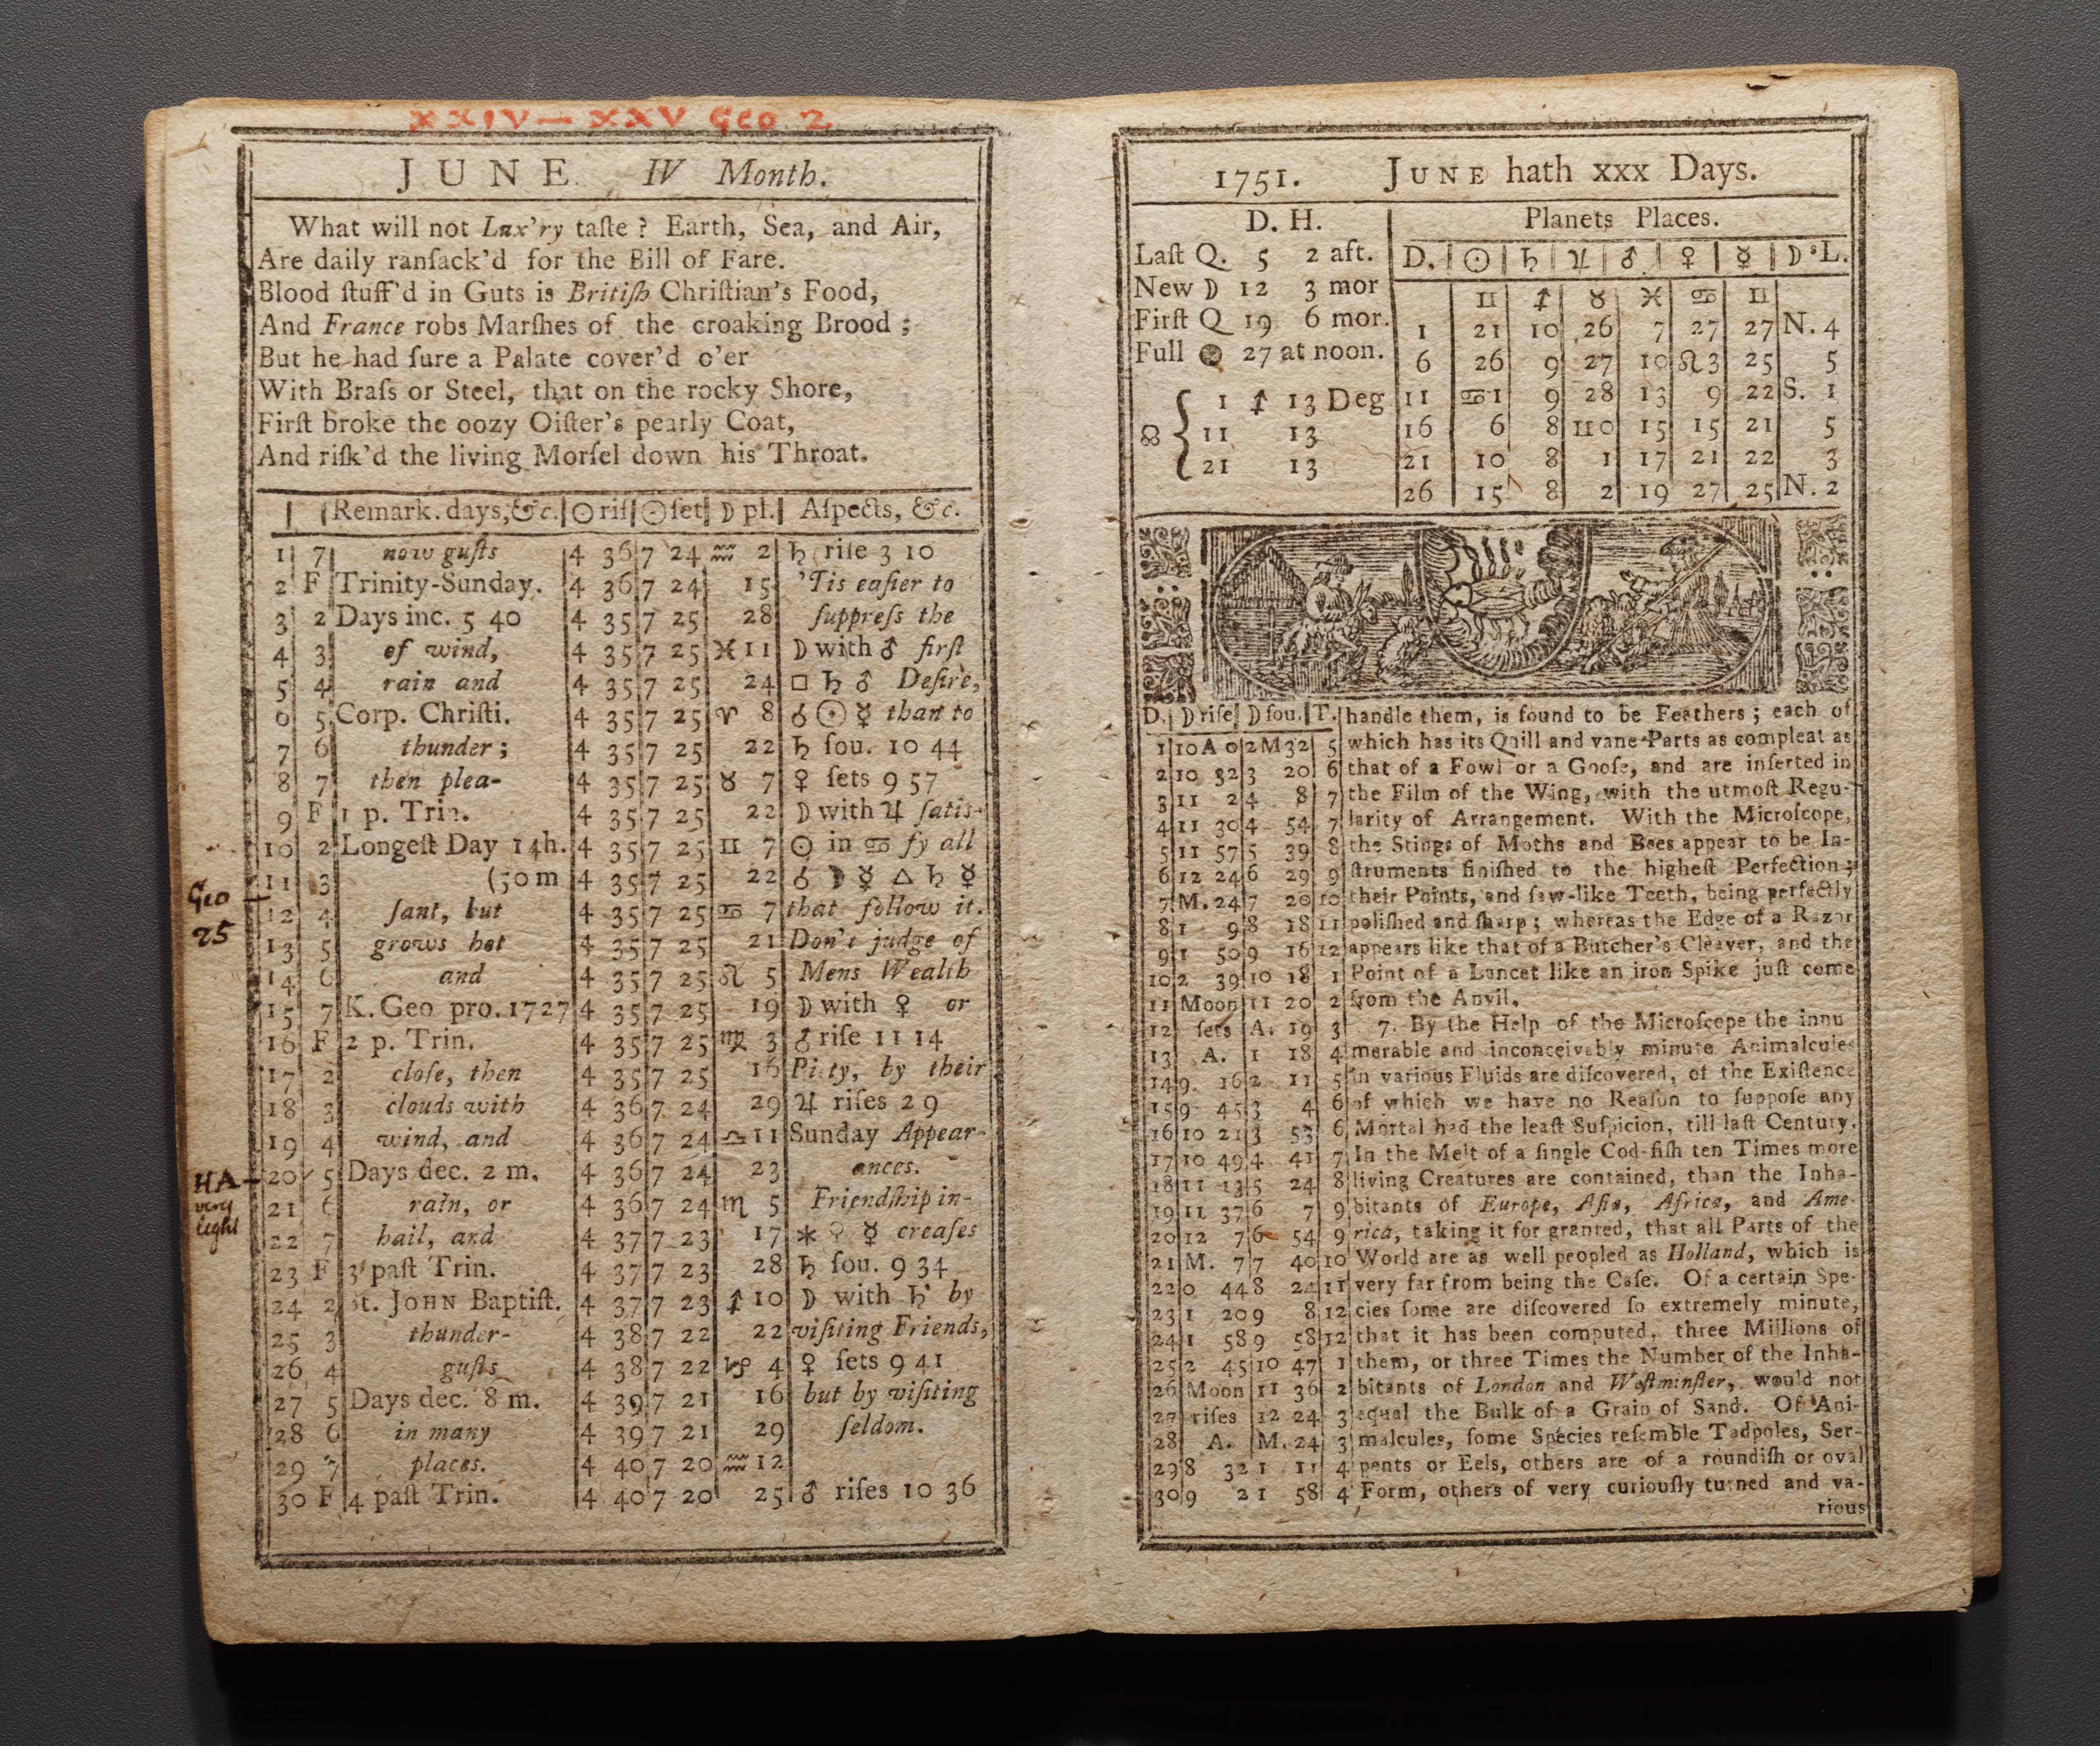 XXIV — XXV Geo 2
JUNE. IV Month.
What will not Lux'ry taſte? Earth, Sea, and Air,
Are daily ranſack'd for the Bill of Fare.
Blood ſtuff'd in Guts is Britiſh Chriſtian's Food,
And France robs Marſhes of the croaking Brood;
But he had ſure a Palate cover'd o'er
With Braſs or Steel, that on the rocky Shore,
Firſt broke the oozy Oiſter's pearly Coat,
And riſk'd the living Morſel down his Throat.
Remark. days, &c. ☉ riſ ☉ ſet ☽ pl. Aſpects, &c.
1 7 now guſts 4 36 7 24 ♒ 2 ♄ riſe 3 10
2 F Trinity-Sunday. 4 36 7 24 15 'Tis eaſier to
3 2 Days inc. 5 40 4 35 7 25 28 ſuppreſs the
4 3 of wind, 4 35 7 25 ♓ 11 ☽ with ♂ firſt
5 4 rain and 4 35 7 25 24 □ ♄ ♂ Deſire,
6 5 Corp. Chriſti. 4 35 7 25 ♈ 8 ☌ ☉ ☿ than to
7 6 thunder; 4 35 7 25 22 ♄ ſou. 10 44
8 7 then plea- 4 35 7 25 ♉ 7 ♀ ſets 9 57
9 F 1 p. Trin. 4 35 7 25 22 ☽ with ♃ ſatis-
10 2 Longeſt Day 14h. 4 35 7 25 ♊ 7 ☉ in ♋ fy all
11 3 (50m 4 35 7 25 22 ☌ ☽ ☿ △ ♄ ☿
Geo
25
12 4 ſant, but 4 35 7 25 ♋ 7 that follow it.
13 5 grows hot 4 35 7 25 21 Don't judge of
14 6 and 4 35 7 25 ♌ 5 Mens Wealth
15 7 K. Geo pro. 1727 4 35 7 25 19 ☽ with ♀ or
16 F 2 p. Trin. 4 35 7 25 ♍ 3 ♂ riſe 11 14
17 2 cloſe, then 4 35 7 25 16 Piety, by their
18 3 clouds with 4 36 7 24 29 ♃ riſes 2 9
19 4 wind, and 4 36 7 24 ♎ 11 Sunday Appear-
HA
very
light
20 5 Days dec. 2 m. 4 36 7 24 23 ances.
21 6 rain, or 4 36 7 24 ♏ 5 Friendſhip in-
22 7 hail, and 4 37 7 23 17 ⚹ ♀ ☿ creaſes
23 F 3 paſt Trin. 4 37 7 23 28 ♄ ſou. 9 34
24 2 St. JOHN Baptiſt. 4 37 7 23 ♐ 10 ☽ with ♄ by
25 3 thunder- 4 38 7 22 22 viſiting Friends,
26 4 guſts 4 38 7 22 ♑ 4 ♀ ſets 9 41
27 5 Days dec. 8 m. 4 39 7 21 16 but by viſiting
28 6 in many 4 39 7 21 29 ſeldom.
29 7 places. 4 40 7 20 ♒ 12
30 F 4 paſt Trin. 4 40 7 20 25 ♂ riſes 10 36
1751. JUNE hath xxx Days.
D. H.
Laſt Q. 5 2 aft.
New ☽ 12 3 mor
Firſt Q 19 6 mor.
Full ● 27 at noon.
☊ { 1 ♐ 13 Deg
11 13
21 13
Planets Places.
D. ☉ ♄ ♃ ♂ ♀ ☿ ☽'s L.
♊ ♐ ♉ ♓ ♋ ♊
1 21 10 26 7 27 27 N. 4
6 26 9 27 10 ♌ 3 25 5
11 ♋ 1 9 28 13 9 22 S. 1
16 6 8 ♊ 0 15 15 21 5
21 10 8 1 17 21 22 3
26 15 8 2 19 27 25 N. 2
D. ☽ riſe ☽ ſou. T. handle them, is found to be Feathers; each of
1 10 A 0 2 M 32 5 which has its Quill and vane Parts as compleat as
2 10 32 3 20 6 that of a Fowl or a Gooſe, and are inſerted in
3 11 2 4 8 7 the Film of the Wing, with the utmoſt Regu-
4 11 30 4 54 7 larity of Arrangement. With the Microſcope,
5 11 57 5 39 8 the Stings of Moths and Bees appear to be In-
6 12 24 6 29 9 ſtruments finiſhed to the higheſt Perfection;
7 M. 24 7 20 10 their Points, and ſaw-like Teeth, being perfectly
8 1 9 8 18 11 poliſhed and ſharp; whereas the Edge of a Razor
9 1 50 9 16 12 appears like that of a Butcher's Cleaver, and the
10 2 39 10 18 1 Point of a Lancet like an iron Spike juſt come
11 Moon 11 20 2 from the Anvil.
12 ſets A. 19 3 7. By the Help of the Microſcope the innu
13 A. 1 18 4 merable and inconceivably minute Animalcules
14 9 16 2 11 5 in various Fluids are diſcovered, of the Exiſtence
15 9 45 3 4 6 of which we have no Reaſon to ſuppoſe any
16 10 21 3 53 6 Mortal had the leaſt Suſpicion, till laſt Century.
17 10 49 4 41 7 In the Melt of a ſingle Cod-fiſh ten Times more
18 11 13 5 24 8 living Creatures are contained, than the Inha-
19 11 37 6 7 9 bitants of Europe, Aſia, Africa, and Ame-
20 12 7 6 54 9 rica, taking it for granted, that all Parts of the
21 M. 7 7 40 10 World are as well peopled as Holland, which is
22 0 44 8 24 11 very far from being the Caſe. Of a certain Spe-
23 1 20 9 8 12 cies ſome are diſcovered ſo extremely minute,
24 1 58 9 58 12 that it has been computed, three Millions of
25 2 45 10 47 1 them, or three Times the Number of the Inha-
26 Moon 11 36 2 bitants of London and Weſtminſter, would not
27 riſes 12 24 3 equal the Bulk of a Grain of Sand. Of Ani-
28 A. M. 24 3 malcules, ſome Species reſemble Tadpoles, Ser-
29 8 32 1 11 4 pents or Eels, others are of a roundiſh or oval
30 9 2 1 58 4 Form, others of very curiouſly turned and va-
rious